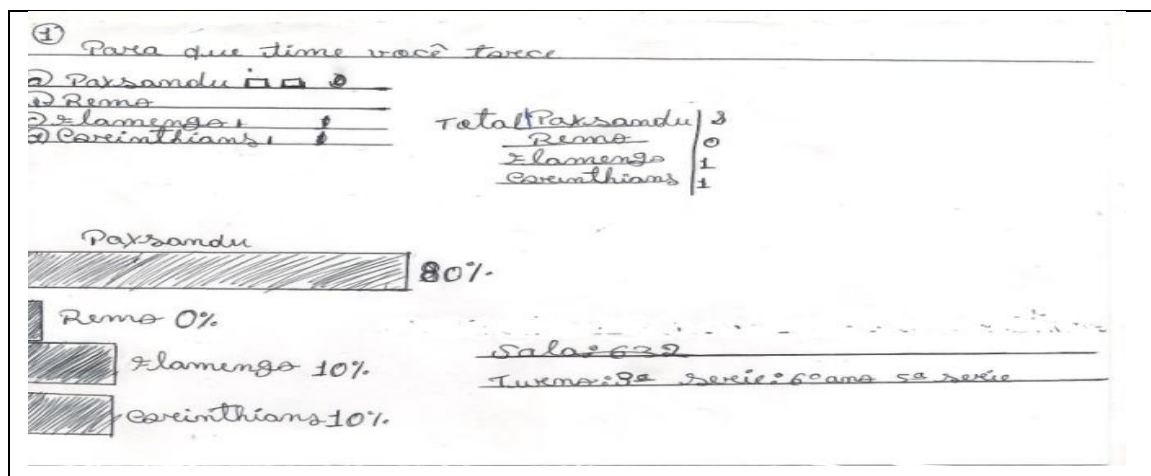 ① Para que time você torce
a) Paysandu
b) Remo
c) Flamengo
d) Corinthians
Total Paysandu | 8
Remo | 0
Flamengo | 1
Corinthians | 1
Paysandu
80%
Remo 0%
Flamengo 10%
Corinthians 10%
Sala: 632
Turno: 2º Serie: 6º ano 5ª serie